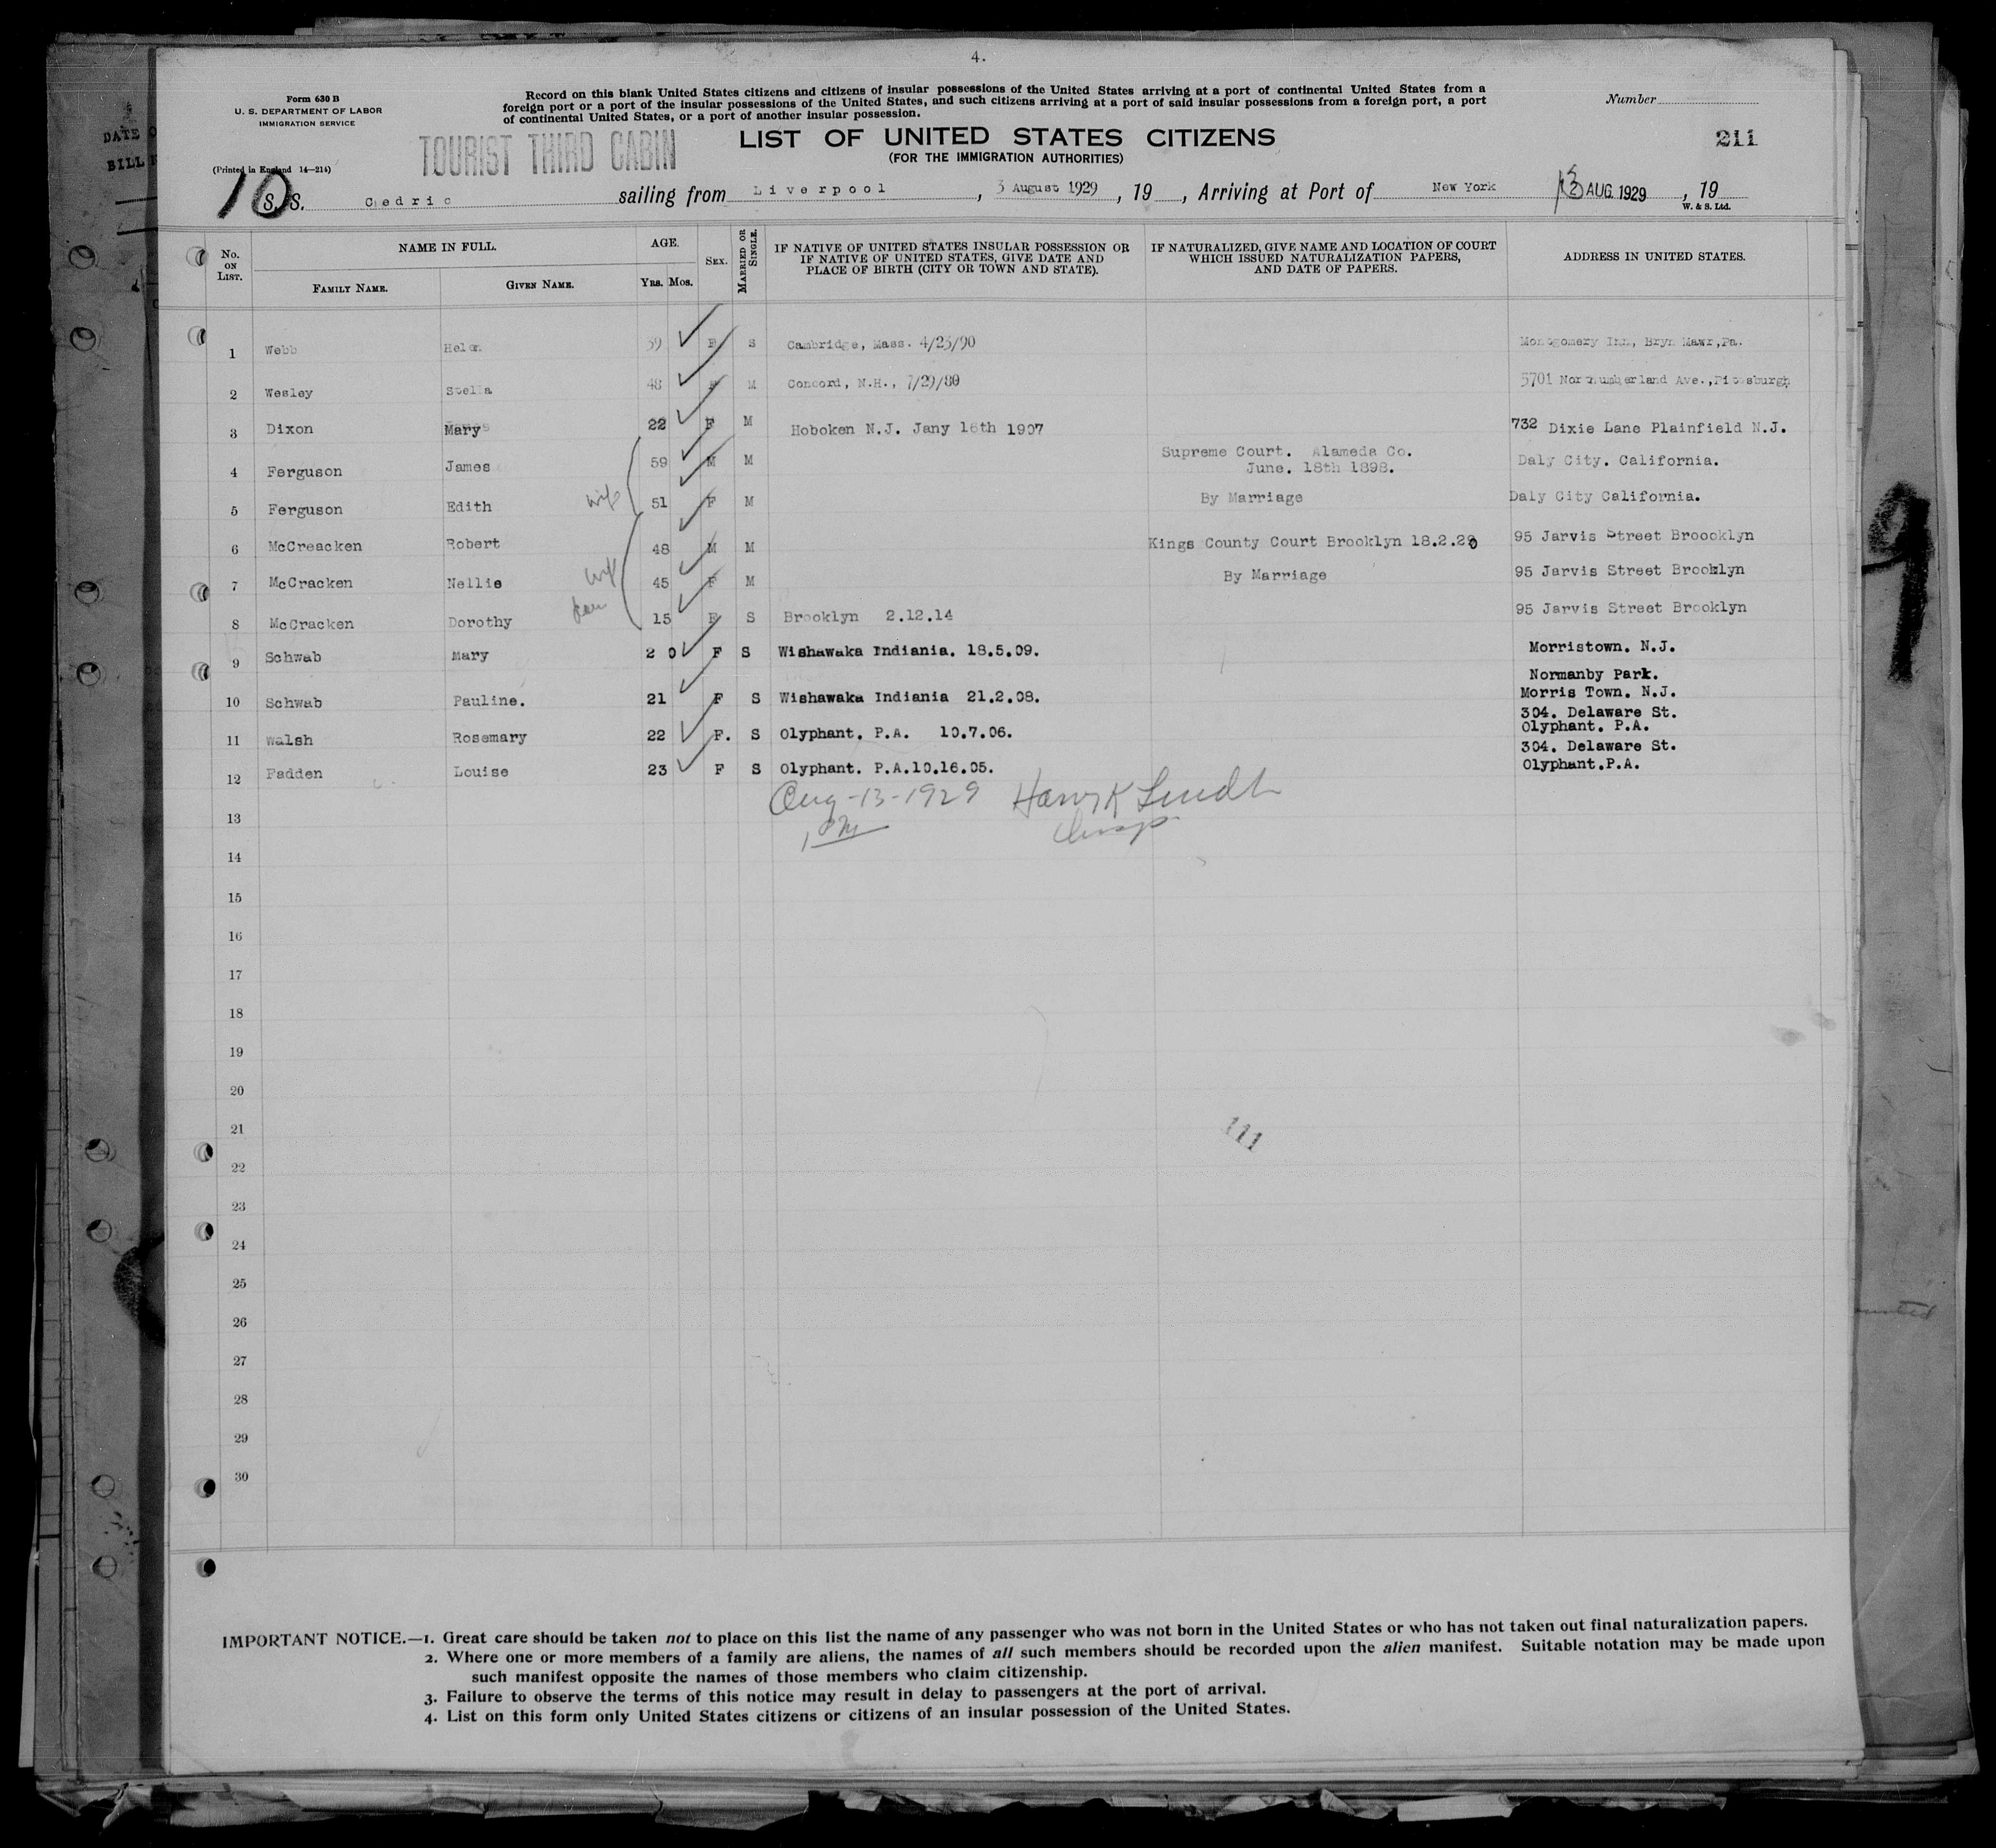 4.
Form 630 B
U. S. DEPARTMENT OF LABOR
IMMIGRATION SERVICE
(Printed in England 14—214)
Record on this blank United States citizens and citizens of insular possessions of the United States arriving at a port of continental United States from a
foreign port or a port of the insular possessions of the United States, and such citizens arriving at a port of said insular possessions from a foreign port, a port
of continental United States, or a port of another insular possession.
Number
211
TOURIST THIRD CABIN
LIST OF UNITED STATES CITIZENS
(FOR THE IMMIGRATION AUTHORITIES)
10
S. S. Cedric sailing from Liverpool, 3 August 1929, 19 , Arriving at Port of New York 13 AUG. 1929, 19
W. & S. Ltd.
No. ON LIST. NAME IN FULL. FAMILY NAME. GIVEN NAME. AGE. YRS. MOS. SEX. MARRIED OR SINGLE. IF NATIVE OF UNITED STATES INSULAR POSSESSION OR IF NATIVE OF UNITED STATES, GIVE DATE AND PLACE OF BIRTH (CITY OR TOWN AND STATE). IF NATURALIZED, GIVE NAME AND LOCATION OF COURT WHICH ISSUED NATURALIZATION PAPERS, AND DATE OF PAPERS. ADDRESS IN UNITED STATES.
1 Webb Helen 39 F S Cambridge, Mass. 4/23/90 Montgomery Inn, Bryn Mawr,Pa.
2 Wesley Stella 48 F M Concord, N.H., 7/29/80 5701 Northumberland Ave.,Pittsburgh
3 Dixon Mary 22 F M Hoboken N.J. Jany 16th 1907 732 Dixie Lane Plainfield N.J.
4 Ferguson James 59 M M Supreme Court. Alameda Co. June. 18th 1898. Daly City. California.
5 Ferguson Edith wife 51 F M By Marriage Daly City California.
6 McCreacken Robert 48 M M Kings County Court Brooklyn 18.2.20 95 Jarvis Street Broocklyn
7 McCracken Nellie wife 45 F M By Marriage 95 Jarvis Street Brooklyn
8 McCracken Dorothy 15 F S Brooklyn 2.12.14 95 Jarvis Street Brooklyn
9 Schwab Mary 2 0 F S Wishawaka Indiania. 18.5.09. Morristown. N.J.
10 Schwab Pauline. 21 F S Wishawaka Indiania 21.2.08. Normanby Park. Morris Town. N.J.
11 Walsh Rosemary 22 F. S Olyphant. P.A. 10.7.06. 304. Delaware St. Olyphant. P.A.
12 Fadden Louise 23 F S Olyphant. P.A.10.16.05. 304. Delaware St. Olyphant.P.A.
Aug-13-1929
13
14
15
16
17
18
19
20
21
111
22
23
24
25
26
27
28
29
30
IMPORTANT NOTICE.—1. Great care should be taken not to place on this list the name of any passenger who was not born in the United States or who has not taken out final naturalization papers.
2. Where one or more members of a family are aliens, the names of all such members should be recorded upon the alien manifest. Suitable notation may be made upon
such manifest opposite the names of those members who claim citizenship.
3. Failure to observe the terms of this notice may result in delay to passengers at the port of arrival.
4. List on this form only United States citizens or citizens of an insular possession of the United States.